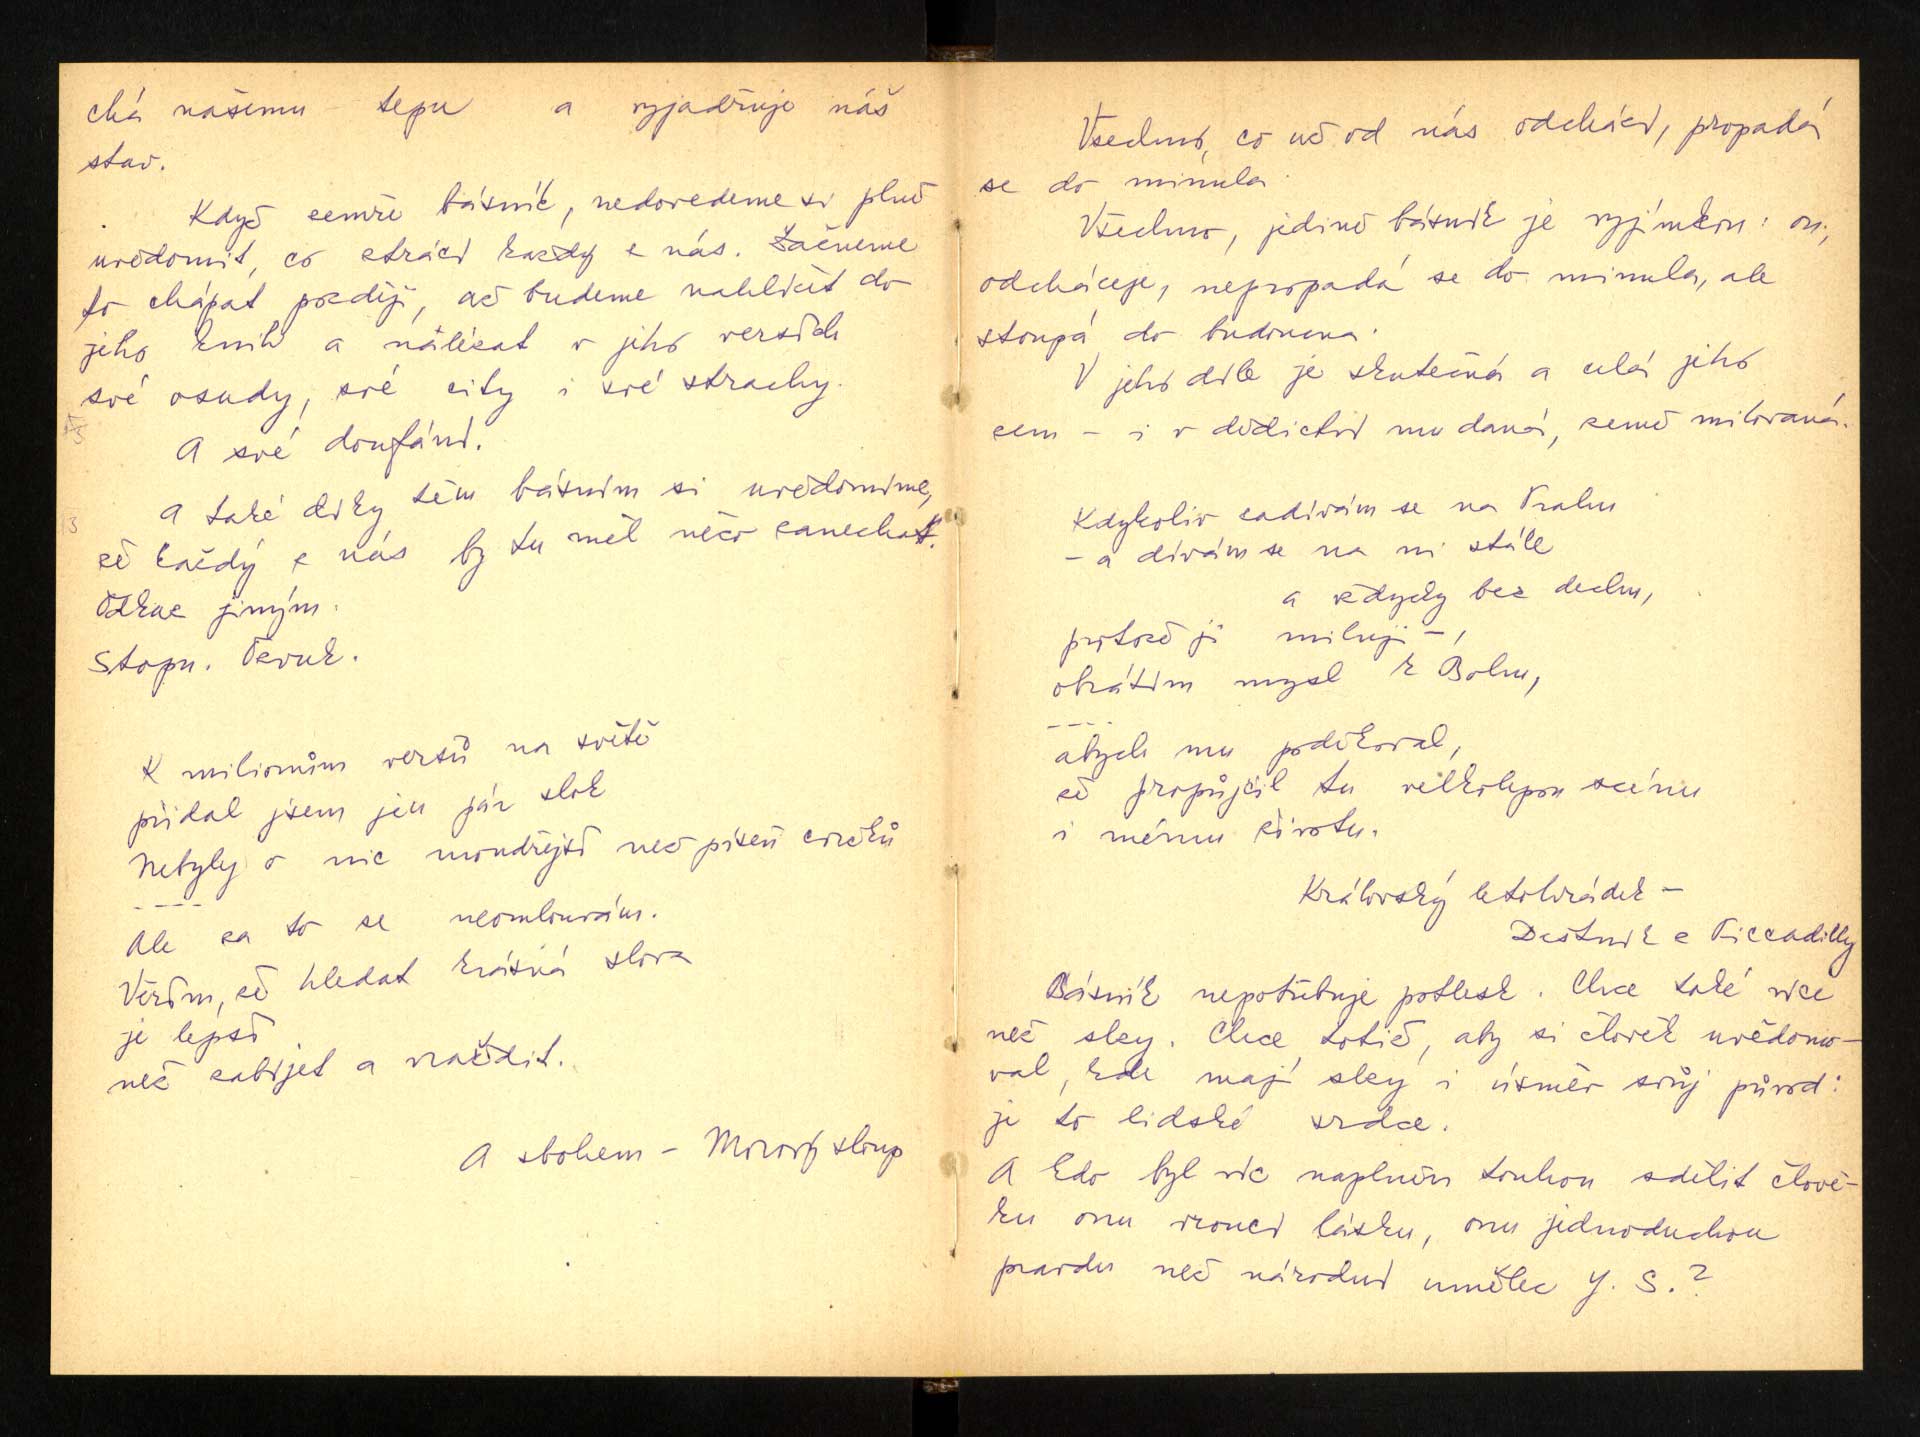 chá našemu tepu a vyjadřuje náš
stav.
Když zemře básník, nedovedeme si plně
uvědomit, co ztrácí každý z nás. Začneme
to chápat později, až budeme nahlížet do
jeho knih a nalézat v jeho verších
své osudy, své city i své strachy.
A své doufání.
A také díky těm básním si uvědomíme,
že každý z nás by tu měl něco zanechat.
Odkaz jiným.
Stopu. Čevuk.
K milionům veršů na světě
přidal jsem jen pár slok
Nebyly o nic moudřejší než píseň cvrčků
----
Ale za to se neomlouvám.
Věřím, že hledat krásná slova
je lepší
než zabíjet a vraždit.
A sbohem – Morový sloup
Všechno, co už od nás odchází, propadá
se do minula.
Všechno, jedině básník je vyjímkou: on,
odcházeje, nepropadá se do minula, ale
stoupá do budoucna.
V jeho díle je skutečná a celá jeho
zem – i v dědictví mu daná, země milovaná.
Kdykoliv zadívám se na Prahu
– a dívám se na ni stále
a vždycky bez dechu,
protože ji miluji –,
obrátím mysl k Bohu,
----
abych mu poděkoval,
že propůjčil tu velkolepou scénu
i mému životu.
Královský letohrádek –
Deštník z Piccadilly
Básník nepotřebuje potlesk. Chce také více
než slzy. Chce totiž, aby si člověk uvědomo-
val, kde mají slzy i úsměv svůj původ:
je to lidské srdce.
A kdo byl víc naplněn touhou sdělit člově-
ku onu vroucí lásku, onu jednoduchou
pravdu než národní umělec J. S.?